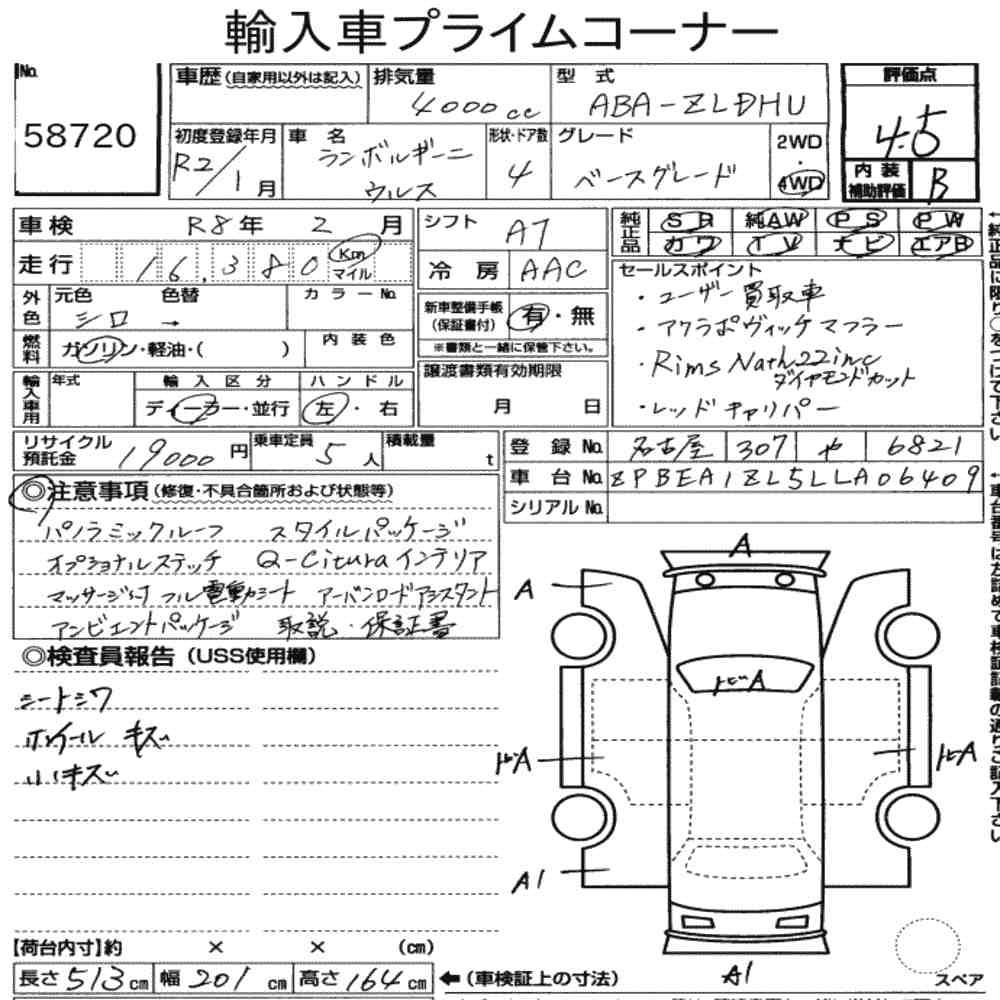 輸入車プライムコーナー
No. 58720
車歴（自家用以外は記入）
排気量 4000cc
型式 ABA-ZLDHU
評価点 4.5
初度登録年月 R2/1月
車名 ランボルギーニ ウルス
形状・ドア数 4
グレード ベースグレード
2WD・4WD
内装補助評価 B
車検 R8年 2月
シフト AT
純正品 SR 純AW PS PW
カワ TV ナビ エアB
走行 16,380 Km マイル
冷房 AAC
セールスポイント
・ユーザー買取車
・アクラポヴィッチマフラー
・Rims Nath 22inc
ダイヤモンドカット
・レッドキャリパー
外色 元色 シロ 色替 → カラーNo.
新車整備手帳（保証書付） 有・無
※書類と一緒に保管下さい。
燃料 ガソリン・軽油・( ) 内装色
譲渡書類有効期限 月 日
輸入車用 年式 輸入区分 ディーラー・並行 ハンドル 左・右
リサイクル預託金 19000円
乗車定員 5人
積載量 t
登録No. 名古屋 307 や 6821
車台No. ZPBEA1ZL5LLA06409
シリアルNo.
◎注意事項（修復・不具合箇所および状態等）
パノラミックルーフ スタイルパッケージ
オプショナルステッチ Q-Citura インテリア
マッサージ付フル電動シート アーバンロードアシスタント
アンビエントパッケージ 取説・保証書
◎検査員報告（USS使用欄）
シートシワ
ホイールキズ
小キズ
A
A
トビA
トビA
トビA
A1
A1
スペア
【荷台内寸】約 × × (cm)
長さ513cm 幅201cm 高さ164cm
←（車検証上の寸法）
↑純正品に限り○をつけて下さい
↑車台番号は左詰めで車検証記載の通りご記入下さい